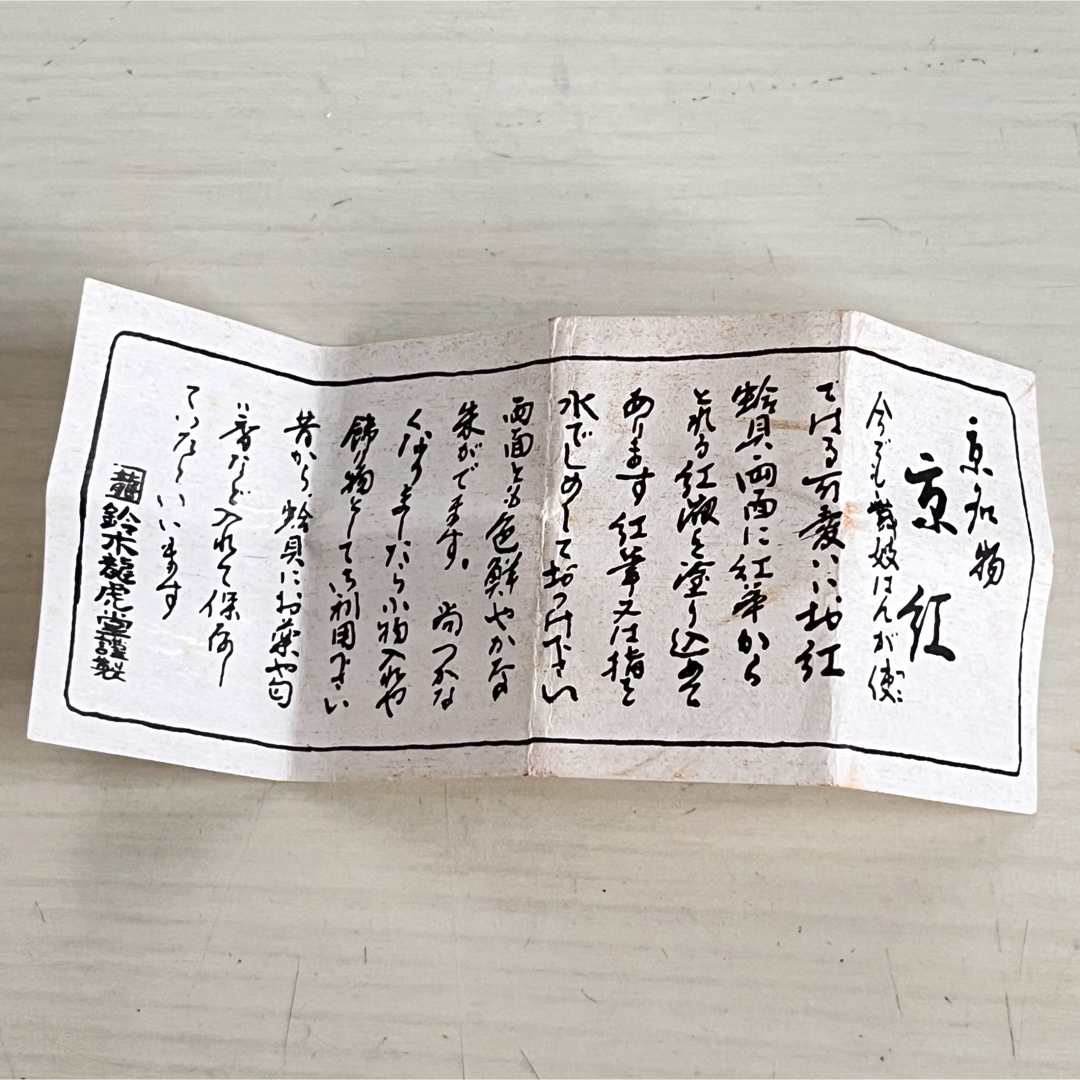 京名物
京紅
今でも舞妓はんが使
てはる可愛いお紅
蛤貝両面に紅草から
とれる紅液を塗り込めて
あります 紅筆又は指を
水でしめしておつけ下さい
両面とも色鮮やかな
朱がでます。尚つかな
くなりましたら小物入れや
飾り物としてご利用下さい
昔から蛤貝にお薬や匂
い香など入れて保存し
ていたといいます
鈴木龍虎堂謹製